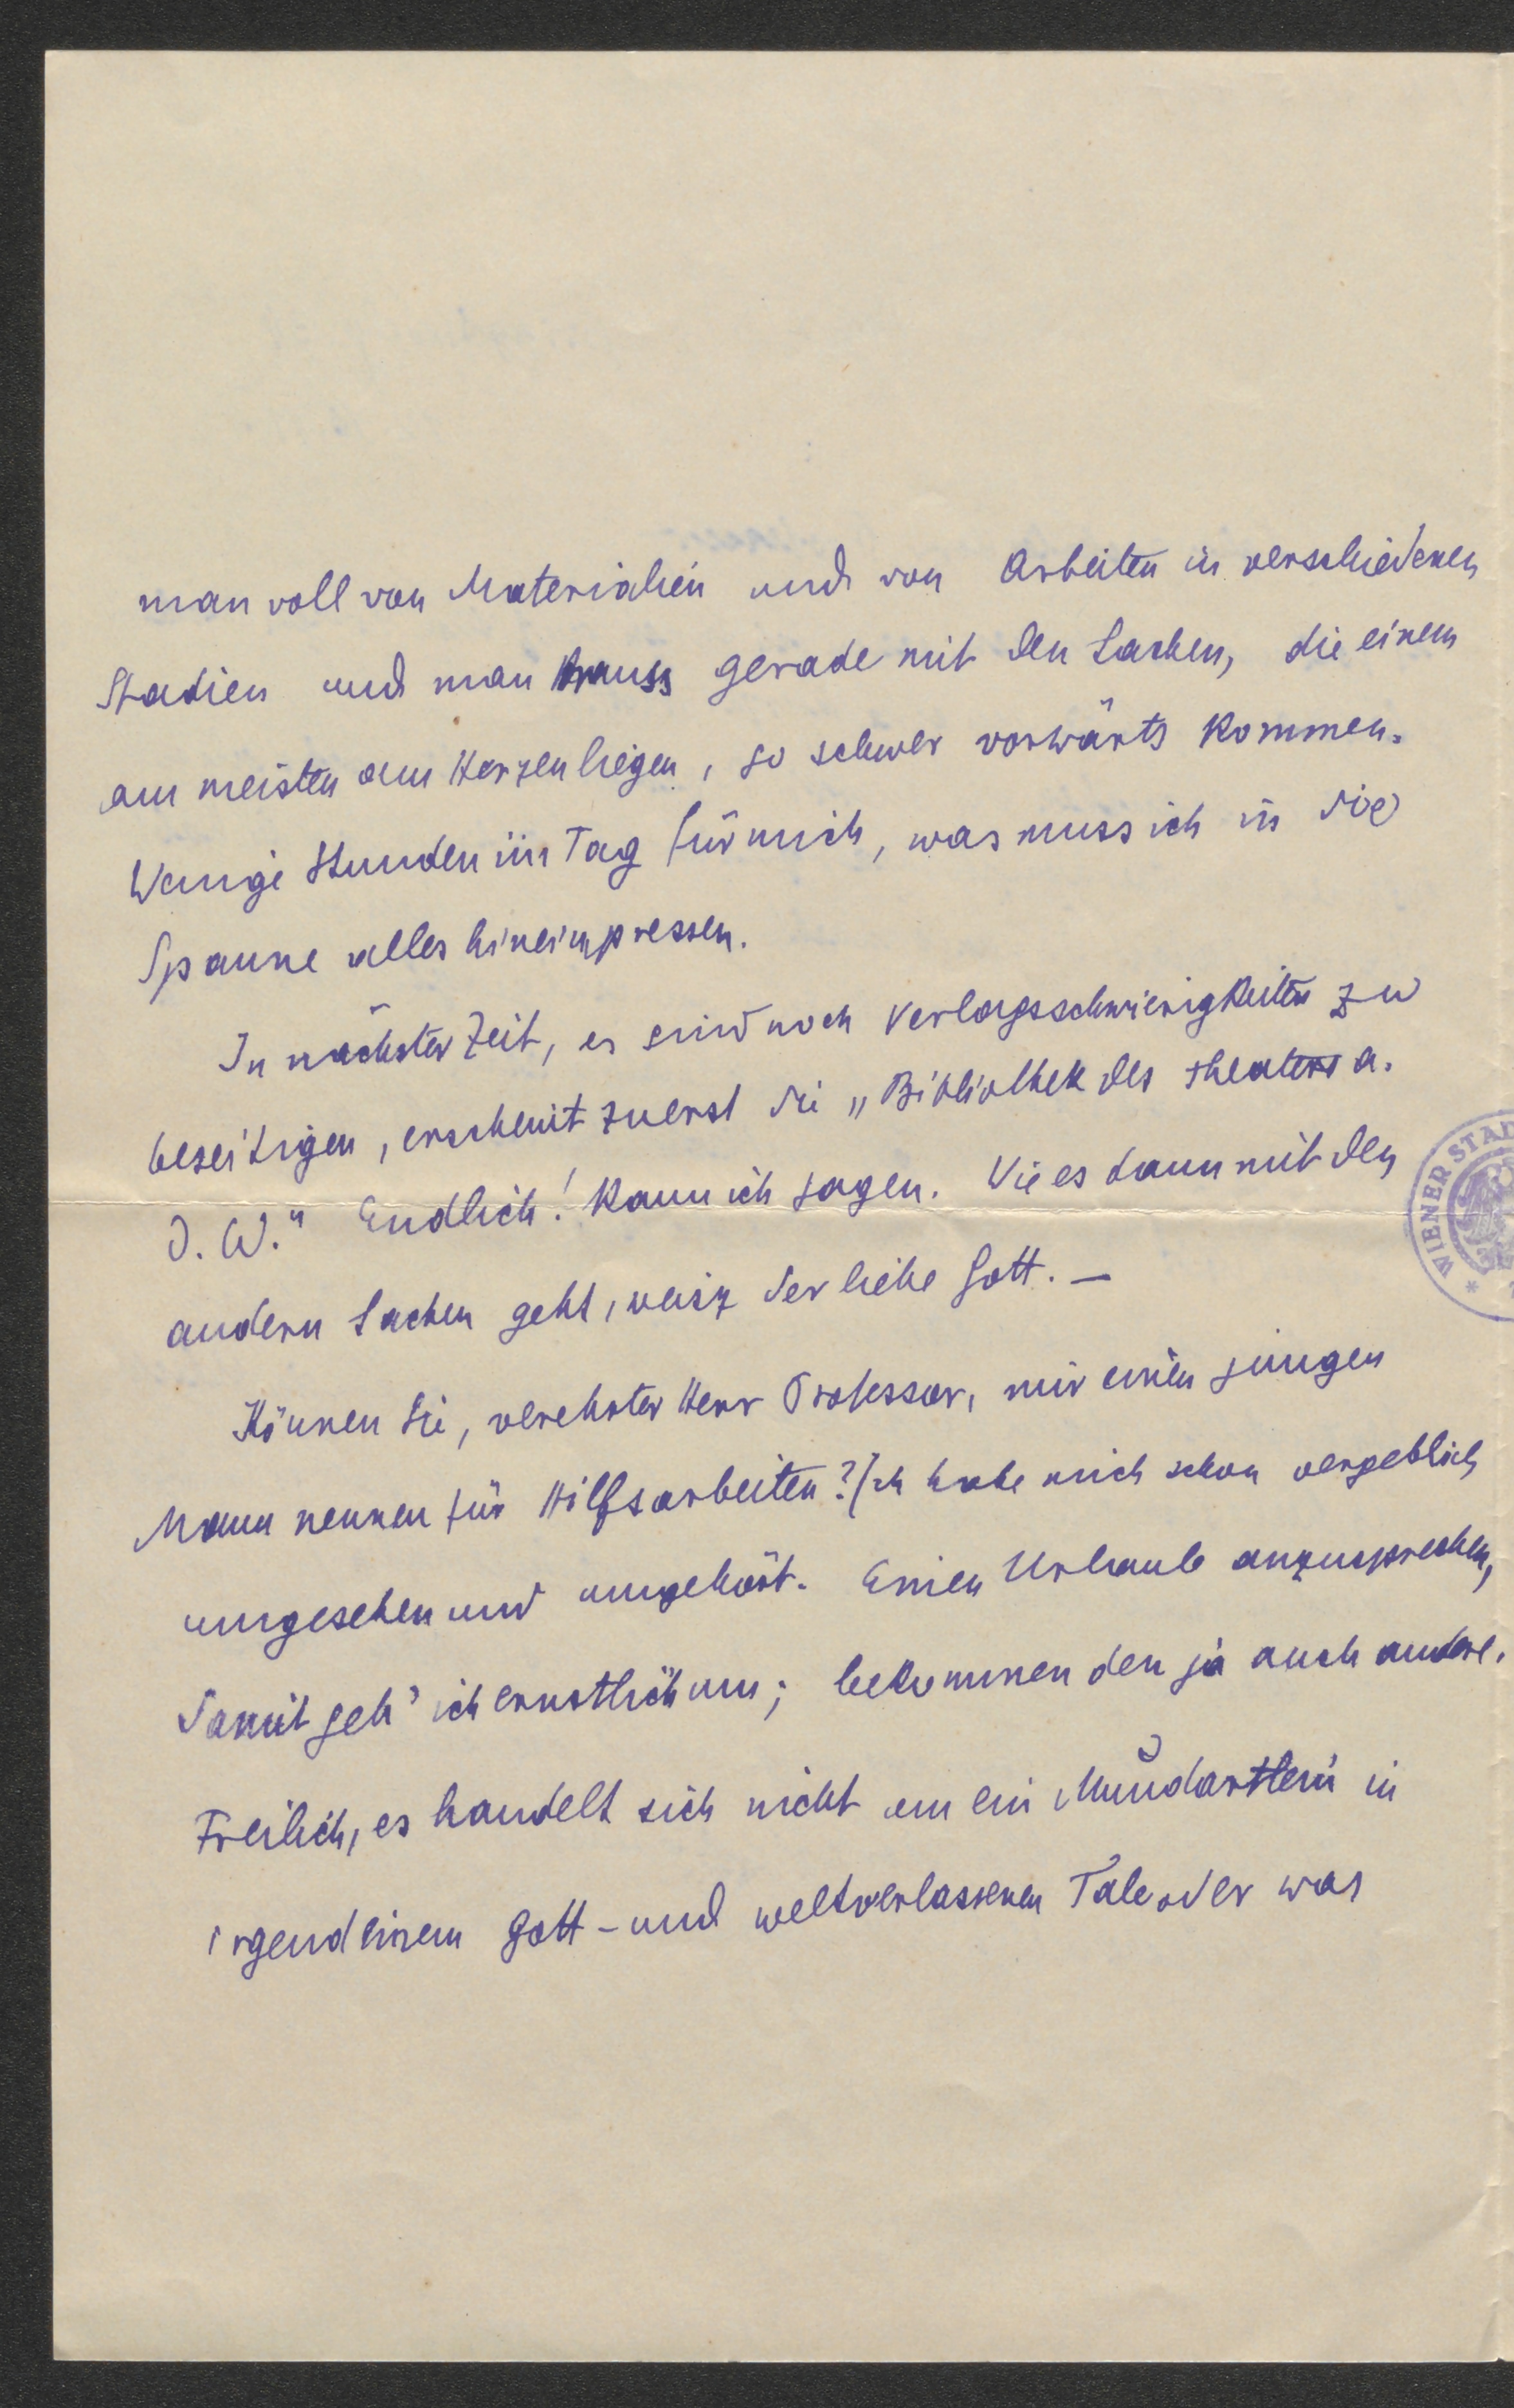 man voll von Materialien und von Arbeiten in verschiedenen
Stadien und man muss gerade mit den Sachen, die einem
am meisten am Herzen liegen, so schwer vorwärts kommen.
Wenige Stunden im Tag für mich, was muss ich in die
Spanne alles hineinpressen.
In nächster Zeit, es sind noch Verlagsschwierigkeiten zu
beseitigen, erscheint zuerst die „Bibliothek des Theaters a.
d. W." Endlich! kann ich sagen. Wie es dann mit den
andern Sachen geht, weisz der liebe Gott. —
Können Sie, verehrter Herr Professor, mir einen jungen
Mann nennen für Hilfsarbeiten? Ich habe mich schon vergeblich
umgesehen und umgehört. Einen Urlaub anzusprechen,
damit geh' ich ernstlich um; bekommen den ja auch andere.
Freilich, es handelt sich nicht um ein Mundartlein in
irgendeinem gott- und weltverlassenen Tale oder was
WIENER STAD